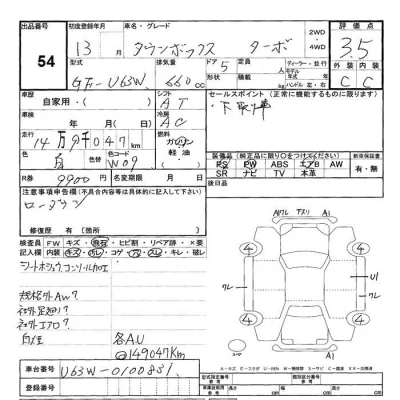 出品番号 初度登録年月 車名・グレード 2WD 4WD 評価点
54 13年 月 タウンボックス ターボ 3.5
型式 排気量 ドア 定員 ディーラー・並行
GF-U63W 660cc 5 形状 積載 モデル 年 kg ハンドル 左・右
外装 内装
C C
車歴 シフト セールスポイント(正常に機能するものに限ります)
自家用・( ) AT 下取り車
車検 冷房
年 月 AC
走行 燃料
14万9千047km ガソリン 軽油
色 色コード 装備品(純正品に限り○をつけてください) 新車保証書
白 W09 PS PW ABS エアB AW 有・無
SR ナビ TV 本革
R券 9900 名変期限 月 日 後日品
注意事項申告欄(不具合内容等は具体的に記入して下さい)
ローダウン
修復歴 有(箇所 )
検査員 FW キズ・飛石・ヒビ割・リペア跡・×要
記入欄 内装 キズ・汚レ・コゲ・穴・スレ・キレ・破レ
シートホショウ コンソールカロエ
規格外AW?
社外足廻り?
社外エアロ?
白ケ 各AU
◎149047Km
車台番号 U63W-0100881
登録番号
Aワレ Aスリ A1
4 4
ワレ ワレ U1
4 4
A1
スペア